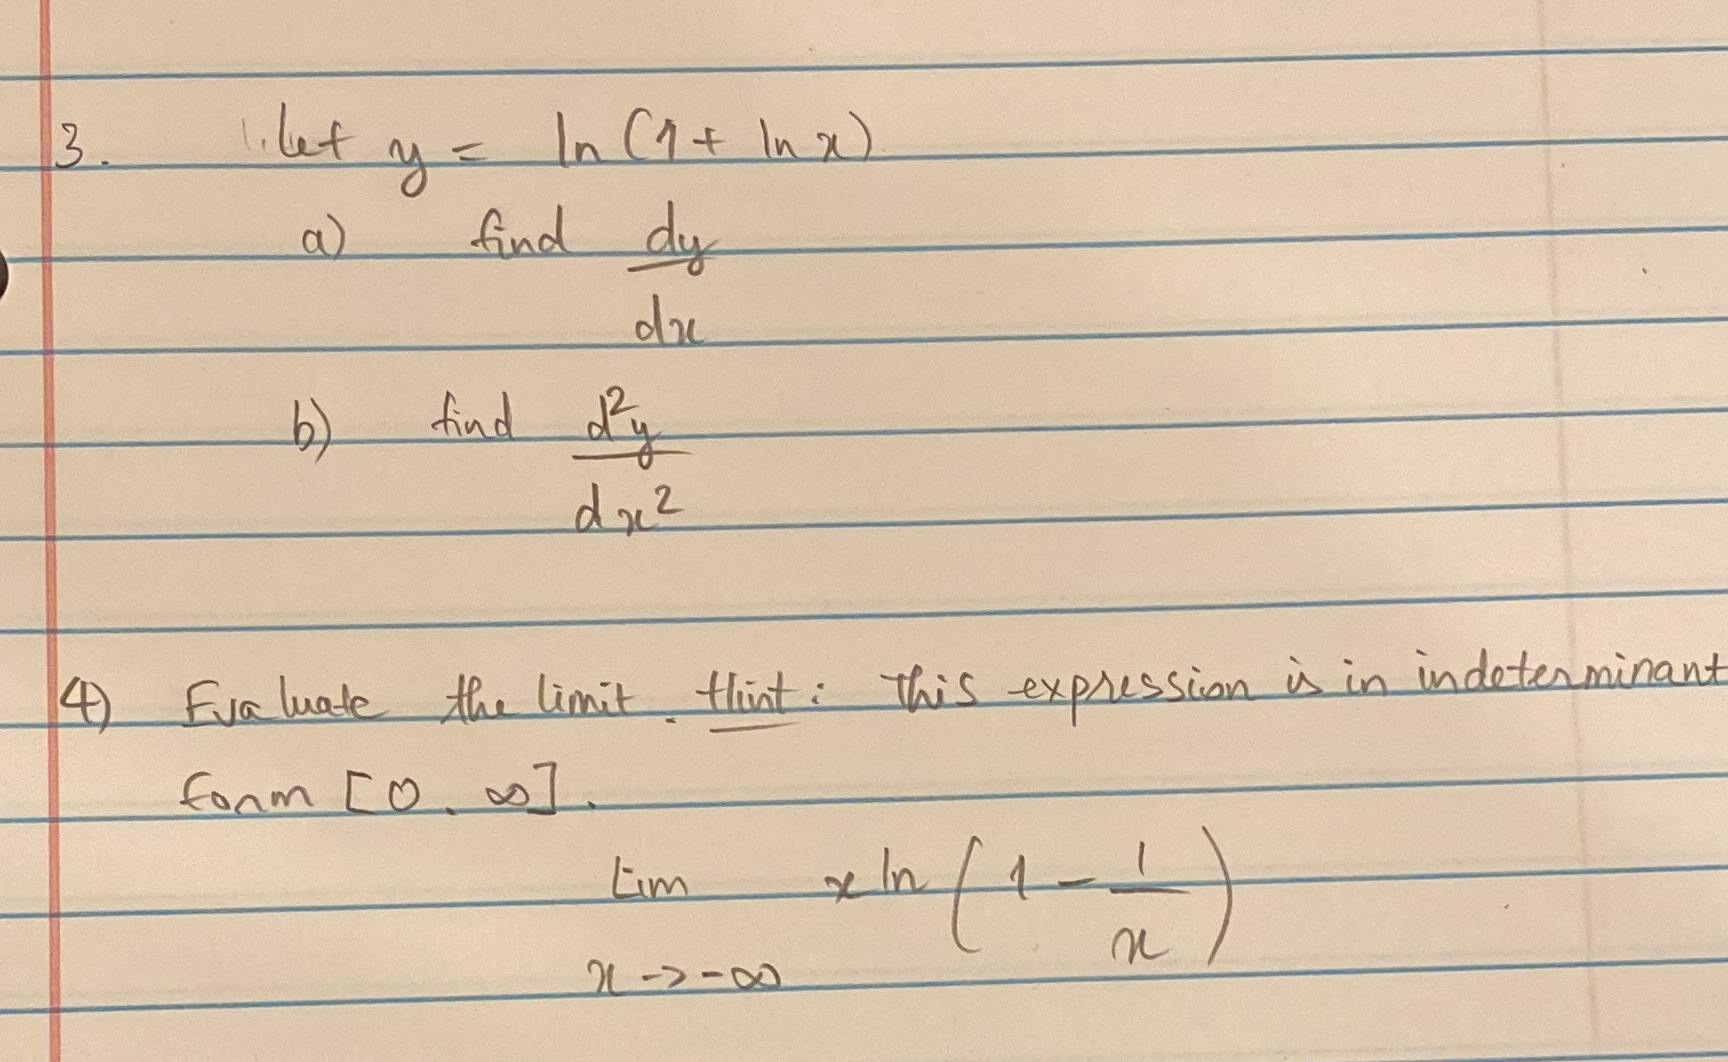 3. let y = ln (1 + ln x)
a) find dy/dx
b) find d²y/dx²
4) Evaluate the limit. Hint: This expression is in indeterminant
form [0. ∞].
Lim x ln (1 - 1/x)
x -> -∞